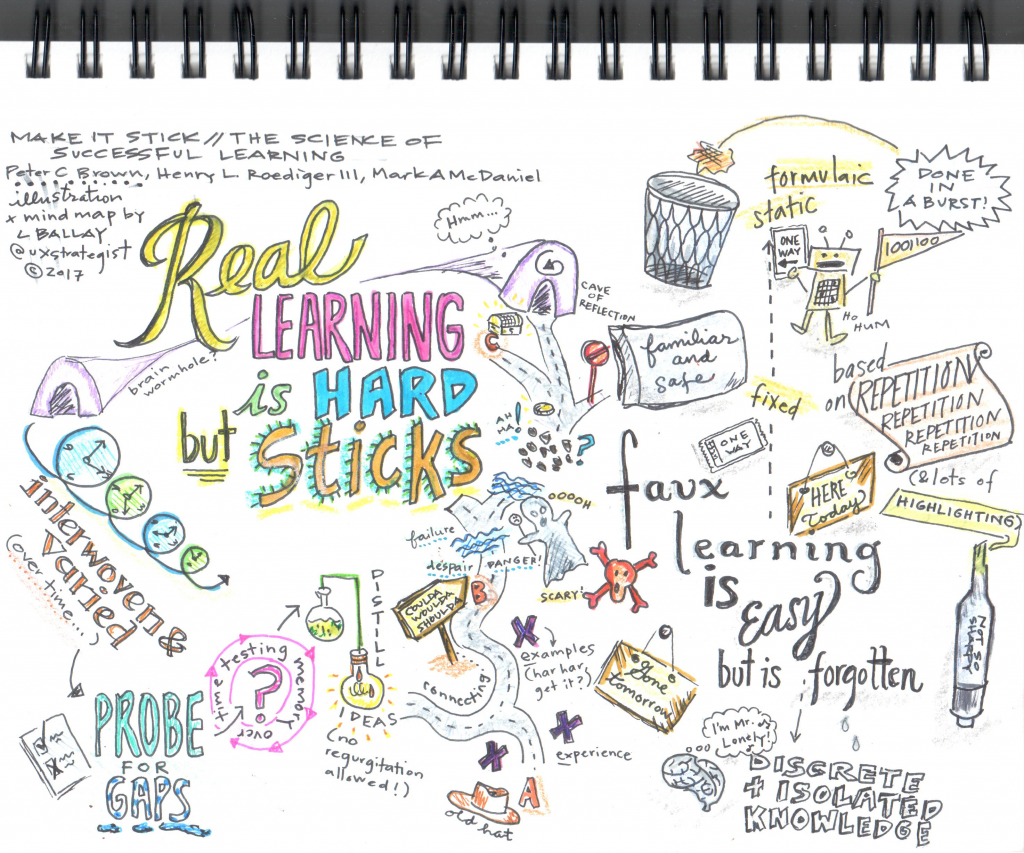 MAKE IT STICK // THE SCIENCE OF
SUCCESSFUL LEARNING
Peter C Brown, Henry L. Roediger III, Mark A McDaniel
illustration
x mind map by
L BALLAY
@uxstrategist
© 2017
Real
LEARNING
is HARD
but Sticks
Hmm...
CAVE
OF
REFLECTION
brain
wormhole?
C
AH
HA!
?
interwoven &
Varied
(over time...)
PROBE
FOR
GAPS
testing
memory
over
time
?
DISTILL
IDEAS
(no
regurgitation
allowed!)
COULDA
WOULDA
SHOULDA
connecting
failure
despair
DANGER!
OOOOH
B
SCARY!
X
examples
(har har,
get it?)
X
experience
X
A
old hat
familiar
and
safe
formulaic
static
DONE
IN
A BURST!
ONE
WAY
1001100
HO
HUM
fixed
based
on
REPETITION
REPETITION
REPETITION
REPETITION
(& lots of
HIGHLIGHTING)
NOT SO
SHARP
ONE
WAY
HERE
Today
faux
learning
is
Easy
but is forgotten
Gone
tomorrow
I'm Mr.
Lonely!
DISCRETE
+ ISOLATED
KNOWLEDGE